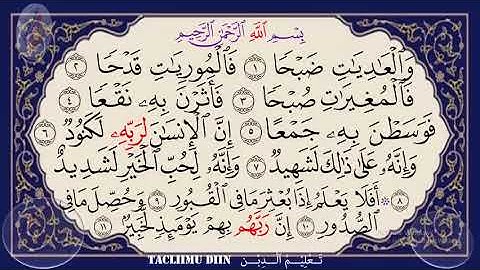 بِسْمِ اللَّهِ الرَّحْمَٰنِ الرَّحِيمِ
وَٱلْعَٰدِيَٰتِ ضَبْحًا ١ فَٱلْمُورِيَٰتِ قَدْحًا ٢
فَٱلْمُغِيرَٰتِ صُبْحًا ٣ فَأَثَرْنَ بِهِۦ نَقْعًا ٤
فَوَسَطْنَ بِهِۦ جَمْعًا ٥ إِنَّ ٱلْإِنسَٰنَ لِرَبِّهِۦ لَكَنُودٌ ٦
وَإِنَّهُۥ عَلَىٰ ذَٰلِكَ لَشَهِيدٌ ٧ وَإِنَّهُۥ لِحُبِّ ٱلْخَيْرِ لَشَدِيدٌ
٨ ۞ أَفَلَا يَعْلَمُ إِذَا بُعْثِرَ مَا فِى ٱلْقُبُورِ ٩ وَحُصِّلَ مَا فِى
ٱلصُّدُورِ ١٠ إِنَّ رَبَّهُم بِهِمْ يَوْمَئِذٍ لَّخَبِيرٌۢ ١١
TACLIIMU DIIN تَعْلِيمُ الدِّينِ